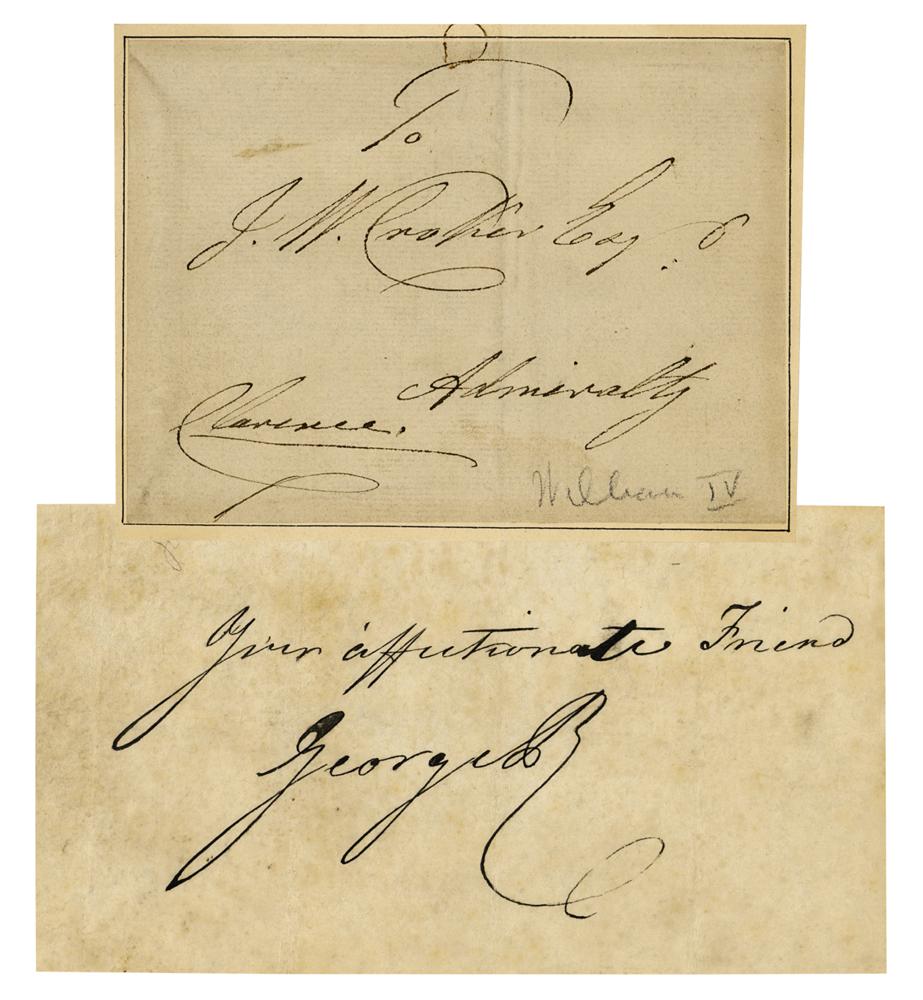 To
J. W. Croker Esq.
Admiralty
Clarence.
William IV
Your affectionate Friend
George R